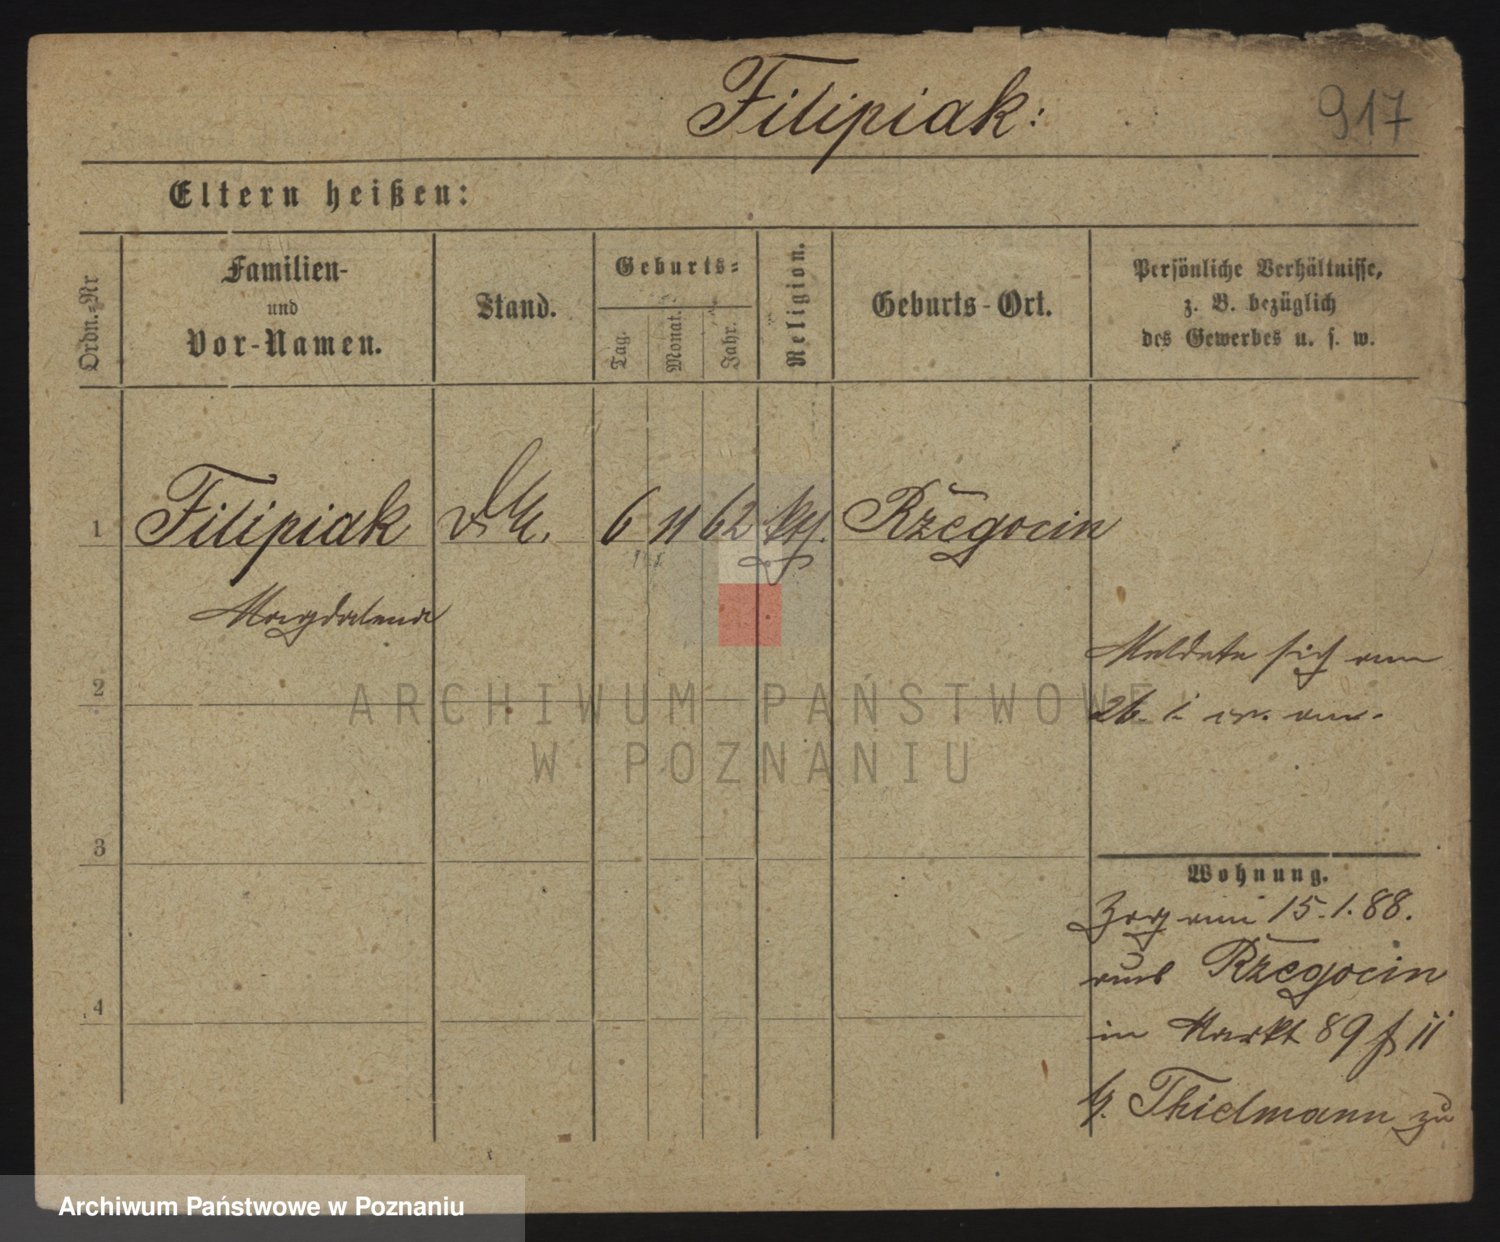 Filipiak:
917
Eltern heißen:
Ordn.-Nr
Familien-
und
Vor-Namen.
Stand.
Geburts-
Tag.
Monat.
Jahr.
Religion.
Geburts-Ort.
Persönliche Verhältnisse,
z. B. bezüglich
des Gewerbes u. s. w.
1 Filipiak 6 11 62 kth. Rzegocin
Magdalena
Meldete sich am
26. 1. cr. an.
2
ARCHIWUM PAŃSTWOWE
W POZNANIU
3
Wohnung.
Zog am 15.1.88.
aus Rzegocin
4
in Markt 89 f II
b. Thielmann zu
Archiwum Państwowe w Poznaniu